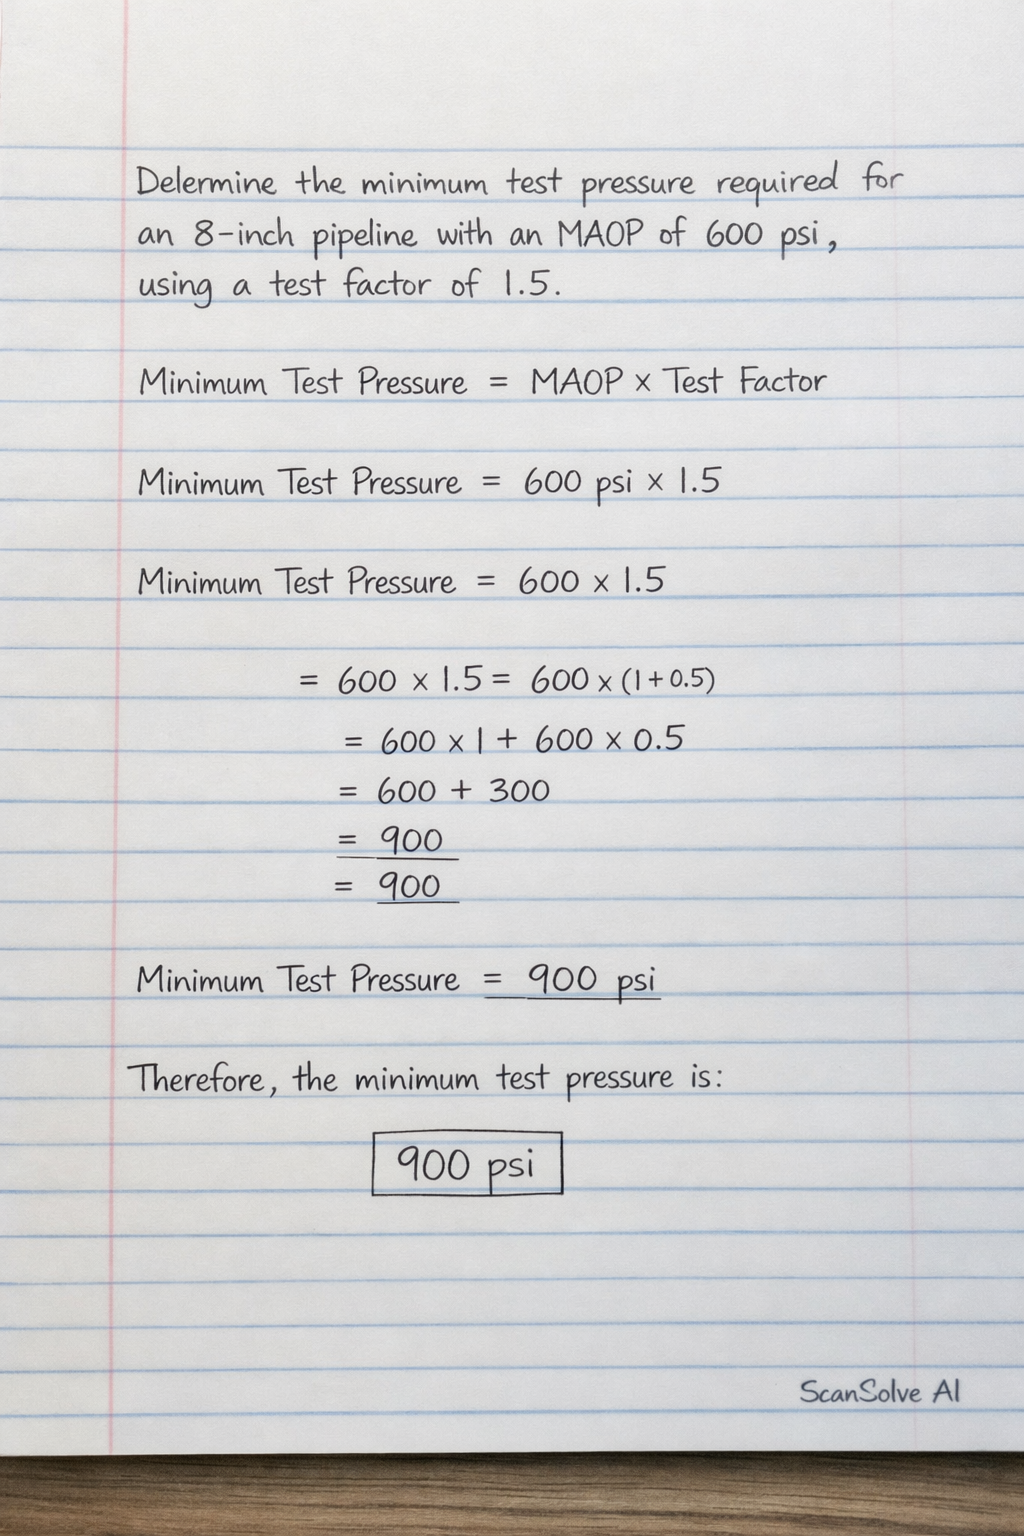 Delermine the minimum test pressure required for
an 8-inch pipeline with an MAOP of 600 psi,
using a test factor of 1.5.
Minimum Test Pressure = MAOP × Test Factor
Minimum Test Pressure = 600 psi × 1.5
Minimum Test Pressure = 600 × 1.5
= 600 × 1.5 = 600 × (1 + 0.5)
= 600 × 1 + 600 × 0.5
= 600 + 300
= 900
= 900
Minimum Test Pressure = 900 psi
Therefore, the minimum test pressure is:
900 psi
ScanSolve AI